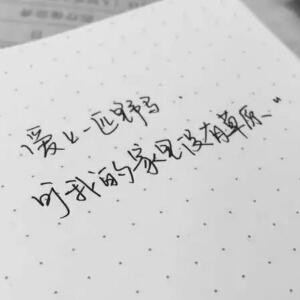 爱上一匹野马
可我的家里没有草原、“